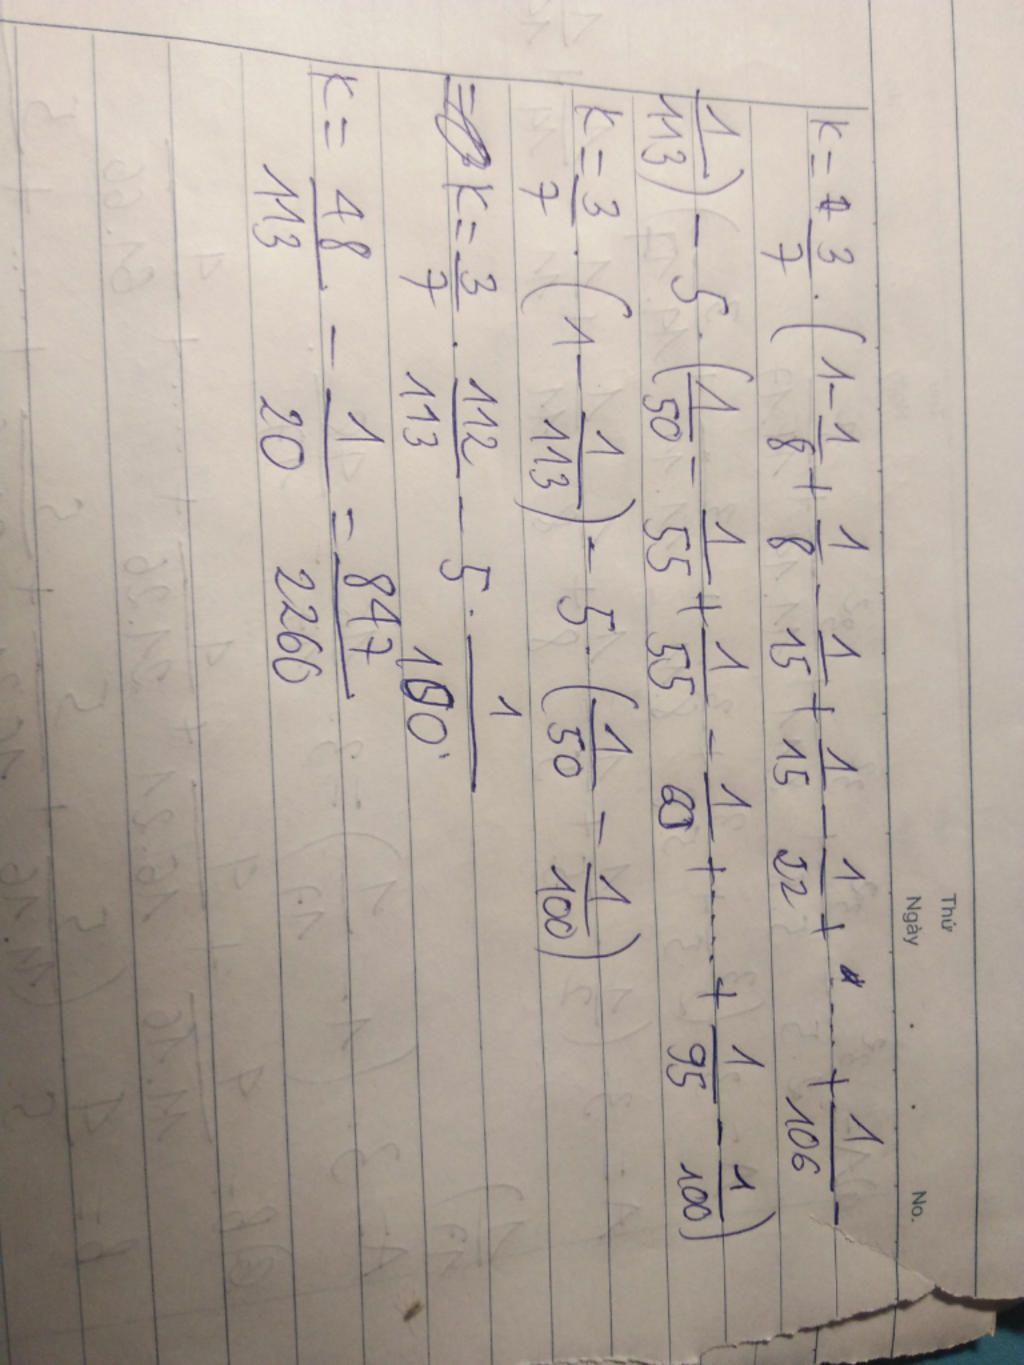 Thứ
Ngày . . No.
K = 3/7 . (1 - 1/8 + 1/8 - 1/15 + 1/15 - 1/22 + .... + 1/106 -
1/113) - 5 . (1/50 - 1/55 + 1/55 - 1/60 + .... + 1/95 - 1/100)
K = 3/7 . (1 - 1/113) - 5 . (1/50 - 1/100)
K = 3/7 . 112/113 - 5 . 1/100
K = 48/113 - 1/20 = 847/2260